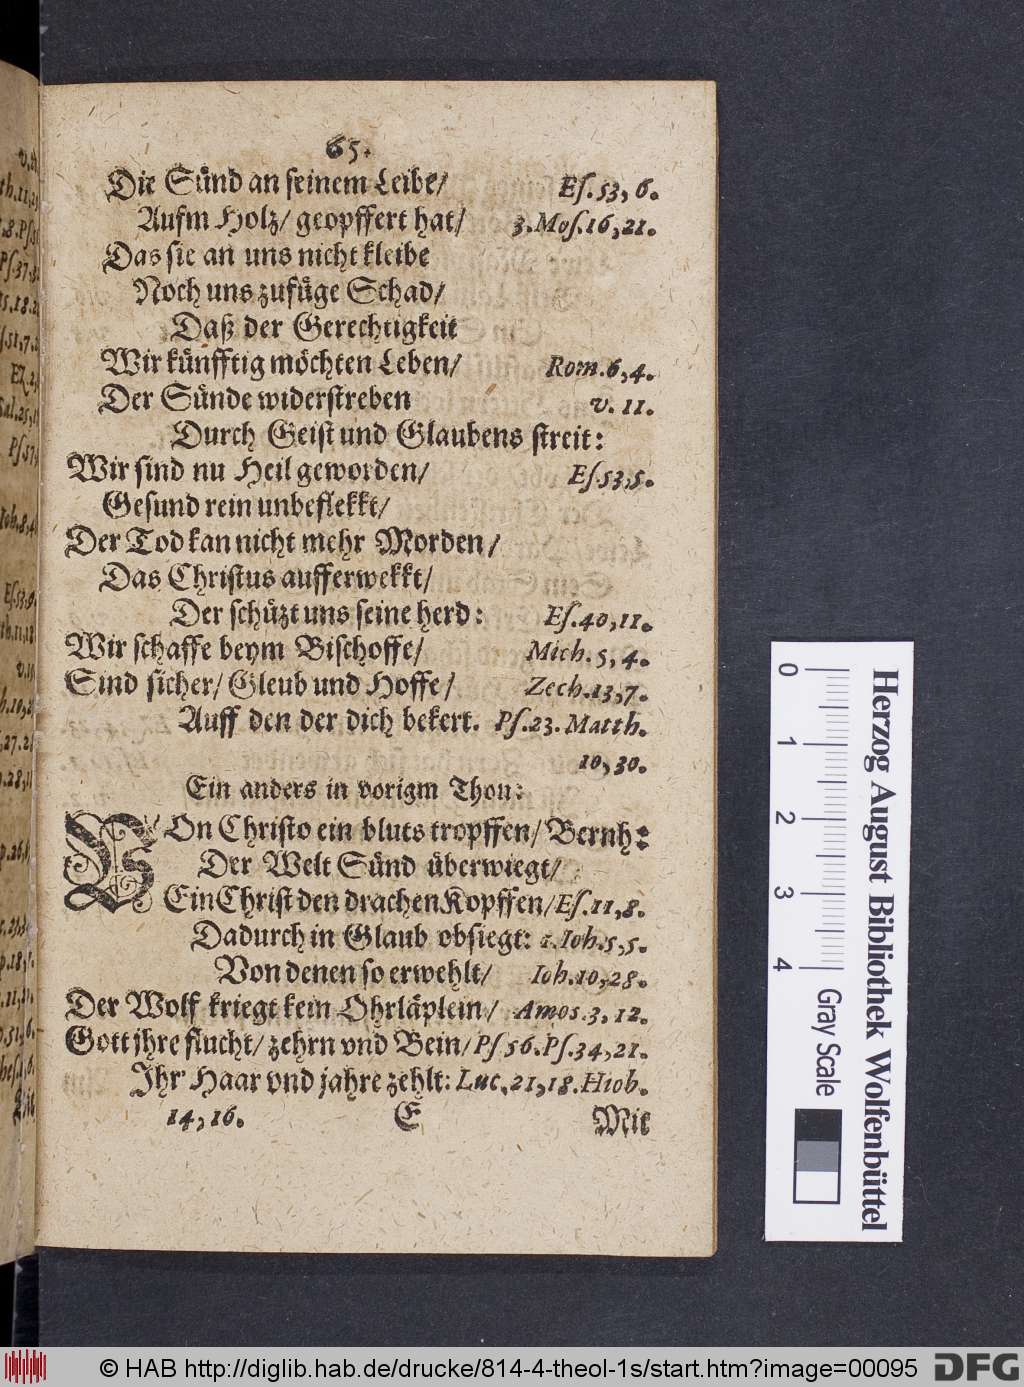 65.
Die Sünd an seinem Leibe/ Es. 53, 6.
Aufm Holz/ geopffert hat/ 3. Mos. 16, 21.
Das sie an uns nicht kleibe
Noch uns zufüge Schad/
Daß der Gerechtigkeit
Wir künfftig möchten Leben/ Rom. 6, 4.
Der Sünde widerstreben v. 11.
Durch Geist und Glaubens streit:
Wir sind nu Heil geworden/ Es 53, 5.
Gesund rein unbeflekkt/
Der Tod kan nicht mehr Morden/
Das Christus aufferwekkt/
Der schüzt uns seine herd: Es. 40, 11.
Wir schaffe beym Bischoffe/ Mich. 5, 4.
Sind sicher/ Gleub und Hoffe/ Zech. 13, 7.
Auff den der dich bekert. Ps. 23. Matth.
10, 30.
Ein anders in vorigm Thon:
VOn Christo ein bluts tropffen/ Bernh:
Der Welt Sünd überwiegt/
Ein Christ den drachen Kopffen/ Es. 11, 8.
Dadurch in Glaub obsiegt: 1. Ioh. 5, 5.
Von denen so erwehlt/ Ioh. 10, 28.
Der Wolf kriegt kein Ohrläplein/ Amos. 3, 12.
Gott jhre flucht/ zehrn vnd Bein/ Ps 56. Ps. 34, 21.
Ihr Haar vnd jahre zehlt: Luc. 21, 18. Hiob.
14, 16. E Mit
Herzog August Bibliothek Wolfenbüttel
0 1 2 3 4 Gray Scale
© HAB http://diglib.hab.de/drucke/814-4-theol-1s/start.htm?image=00095 DFG